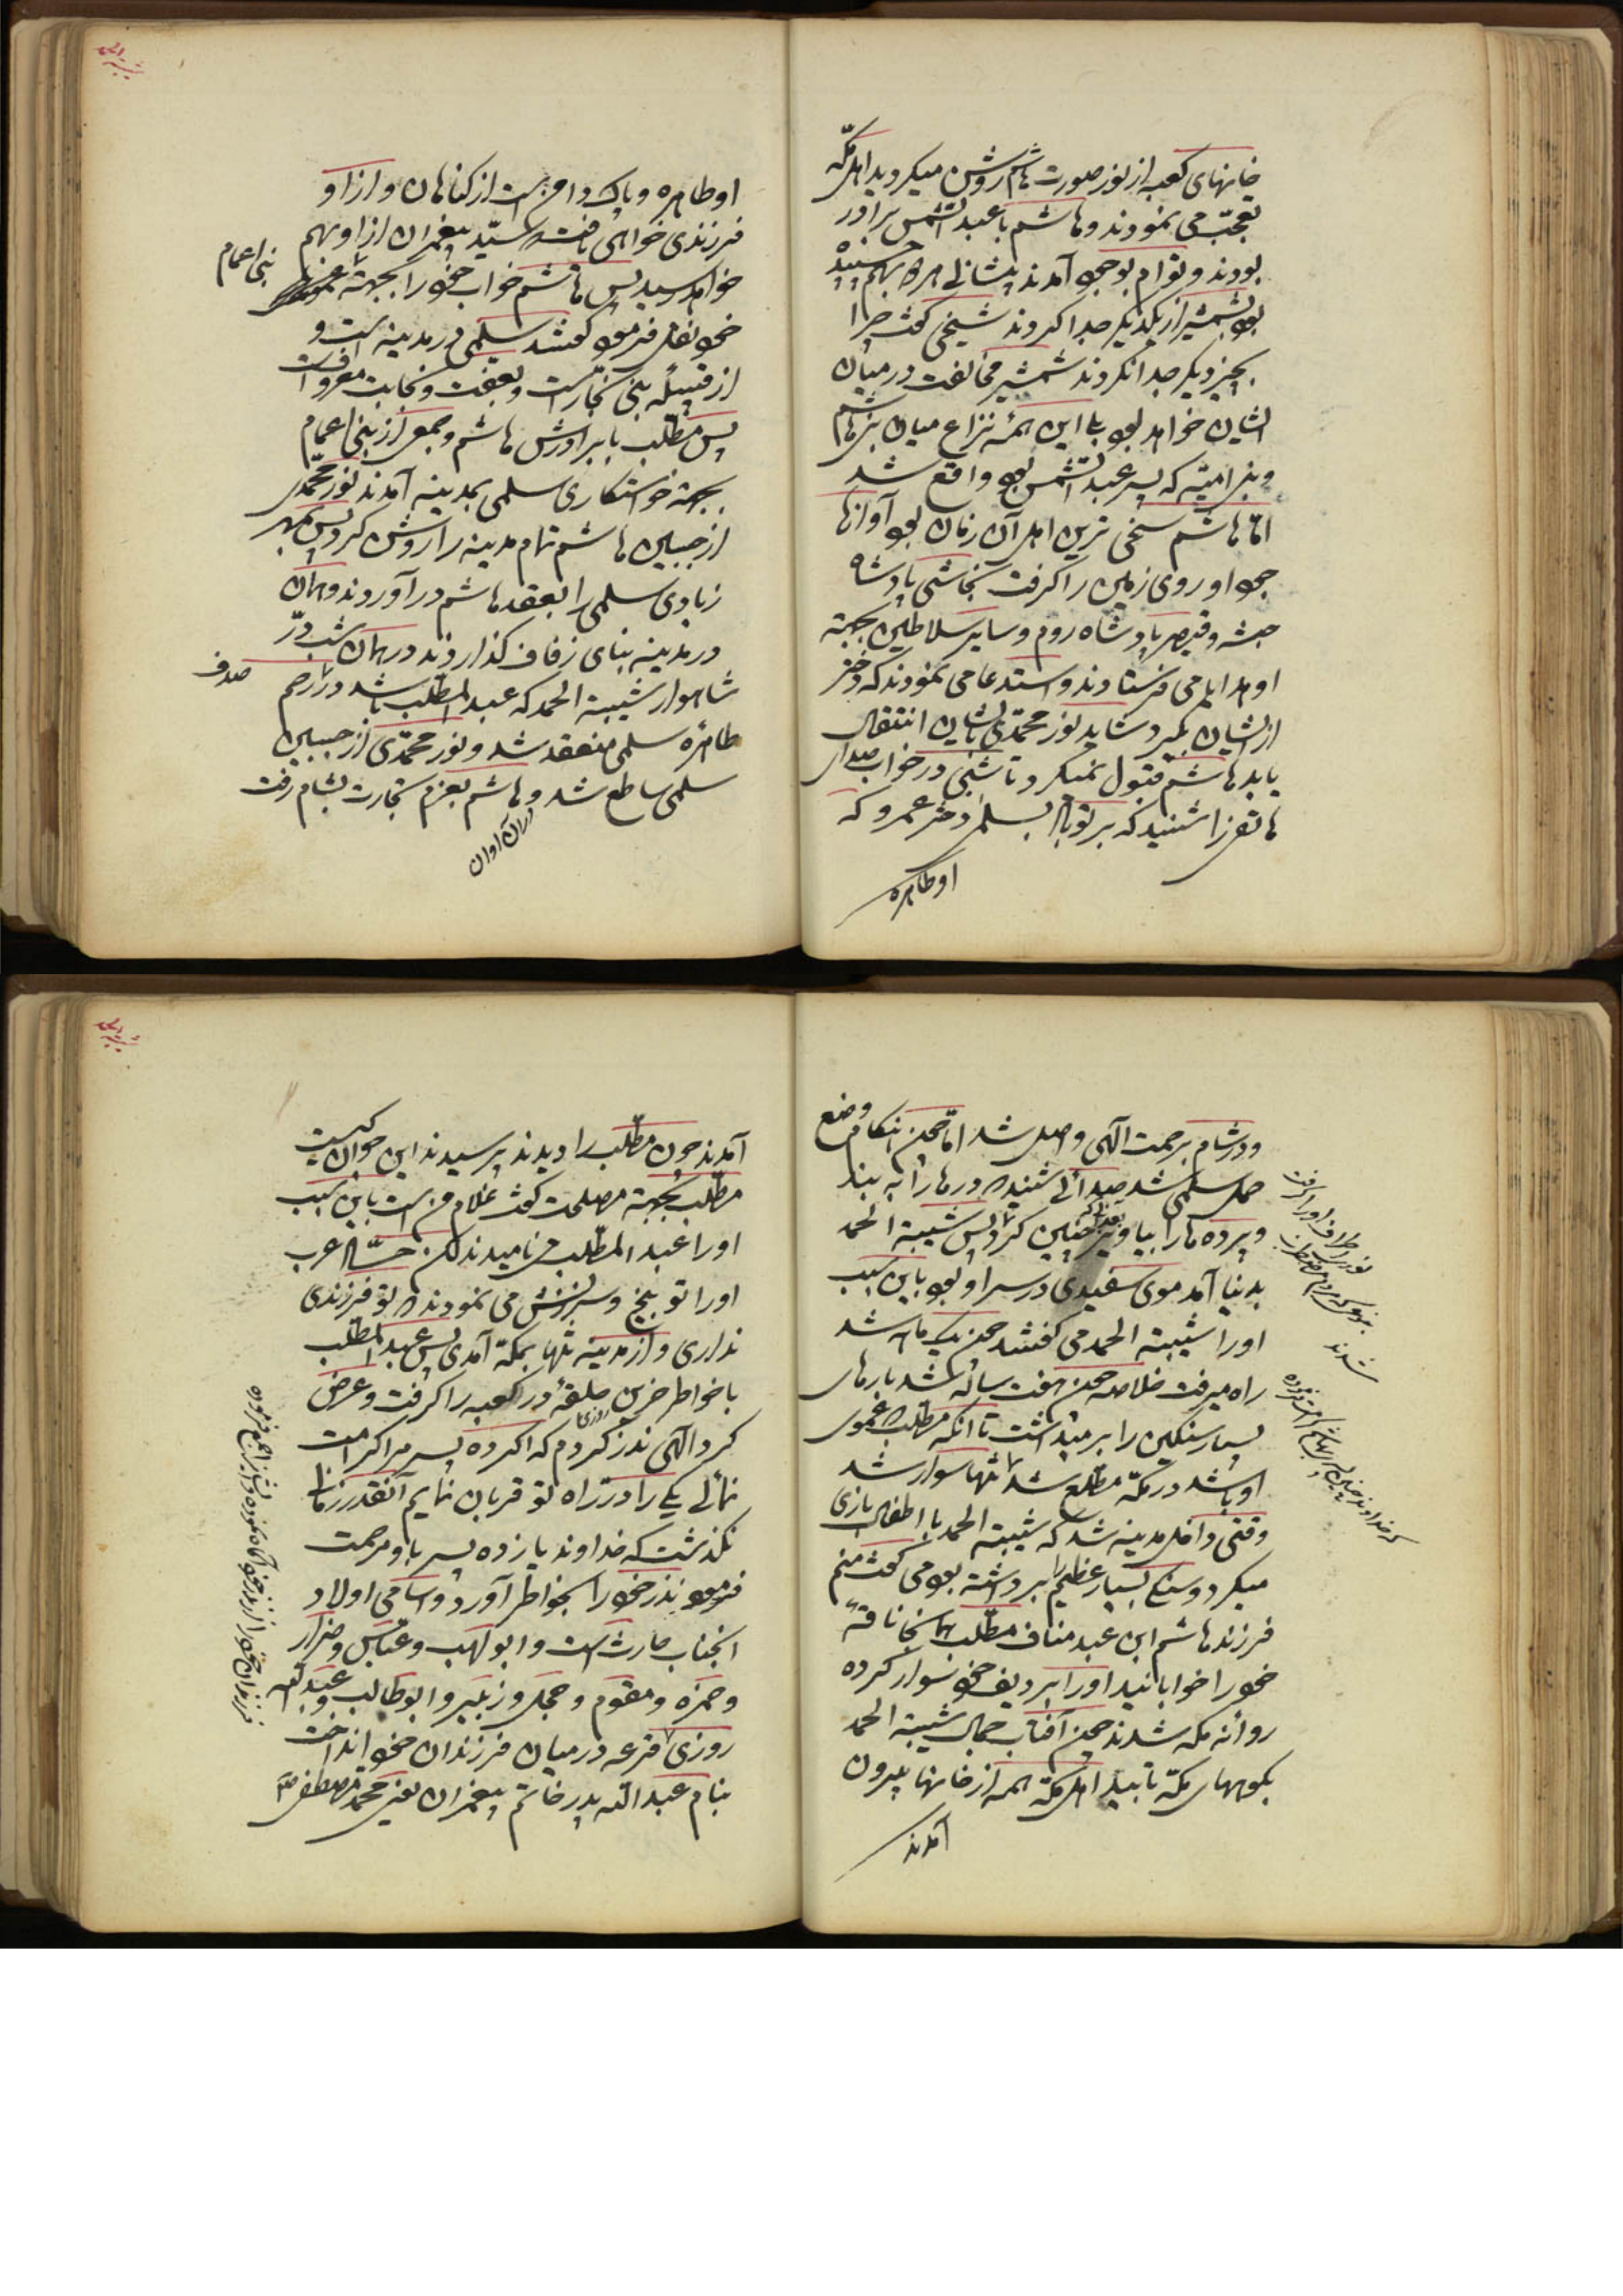 خانهای کعبه از نور صورت هاشم روشن میکردید اهل مکّه
تعجّب می نمودند و هاشم با عبد الشّمس برادر
بودند و توام بوجود آمدند پیشانی هر دو بهم چسبیده
بود بشمشیر از یکدیگر جدا کردند شخصی کفت چرا
بچیز دیگر جدا نکردند شمشیر مخالفت در میان
ایشان خواهد بود با این همه نزاع میان بنی هاشم
و بنی امیّه که پسر عبد الشّمس بود واقع شد
امّا هاشم سخی ترین اهل آن زمان بود آوازهٔ
جود او روی زمین را گرفت نجاشی پادشاه
حبشه و قیصر پادشاه روم و سایر سلاطین بجهته
او هدایا می فرستادند و استدعا می نمودند که دختر
از ایشان بگیرد شاید نور محمّدی بایشان انتقال
یابد هاشم قبول نمیکرد تا شبی در خواب صدای
هاتفی را شنید که بر تو باد بسلمی دختر عمرو که
او طاهره
او طاهره و پاک دامن است از کناهان و از او
فرزندی خواهی یافت که سیّد پیغمبران از او بهم
خواهد رسید پس هاشم خواب خود را بجهته
بنی اعمام
خود نقل فرمود کفتند سلمی در مدینه است و
از قبیلهٔ بنی نجّار است و بعفّت و نجابت معروف است
پس مطّلب با برادرش هاشم و جمعی از بنی اعمام
بجهته خواستکاری سلمی بمدینه آمدند نور محمّدی
از جبین هاشم تمام مدینه را روشن کرد پس بمهر
زیادی سلمی را بعقد هاشم در آوردند و همان
در مدینه بنای زفاف کذاردند در همان شب درّ
شاهوار شیبة الحمد که عبد المطّلب باشد در رحم
صدف
طاهرهٔ سلمی منعقد شد و نور محمّدی از جبین
سلمی ساطع شد و هاشم بعزم تجارت بشام رفت
در آن اوان
و در شام برحمت الهی واصل شد امّا چون هنکام وضع
حمل سلمی شد صدائی شنید که درها را به بند
و پرده ها را بیاویز چنین کرد پس شیبة الحمد
بدنیا آمد موی سفیدی در سر او بود باین سبب
او را شیبة الحمد می کفتند چون یک ماهه شد
راه میرفت خلاصه چون هفت ساله شد بارهای
بسیار سنکین را بر میداشت تا انکه مطّلب که عموی
او باشد در مکّه مطّلع شد تنها سوار شد
وقتی داخل مدینه شد که شیبة الحمد با اطفال بازی
میکرد و سنک بسیار عظیم را برداشته بود می کفت منم
فرزند هاشم ابن عبد مناف مطّلب همانجا ناقهٔ
خود را خوابانید او را بردیف خود سوار کرده
روانهٔ مکه شدند چون آفتاب جمال شیبة الحمد
بکوههای مکّه تابید اهل مکّه همه از خانها بیرون
آمدند
آمدند چون مطّلب را دیدند پرسیدند این جوان کیست
مطّلب بجهته مصلحت کفت غلام من است باین سبب
او را عبد المطّلب می نامیدند لکن جهّال عرب
او را توبیخ و سرزنش می نمودند که تو فرزندی
نداری و از مدینه تنها بمکّه آمدی پس عبد المطّلب
با خواطر حزین حلقهٔ در کعبه را کرفت و عرض
روزی
کرد الهی نذر کردم که اکر ده پسر مرا کرامت
نمائی یکی را در راه تو قربان نمایم آنقدر زمان
نکذشت که خداوند یازده پسر باو مرحمت
فرمود نذر خود را بخواطر آورد و اسامی اولاد
انجناب حارث است و ابو لهب و عبّاس و ضرار
و حمزه و مقوم و حجل و زبیر و ابو طالب و عبد اللّه
روزی قرعه در میان فرزندان خود انداخت
بنام عبد اللّه پدر خاتم پیغمبران یعنی محمّد مصطفی ص